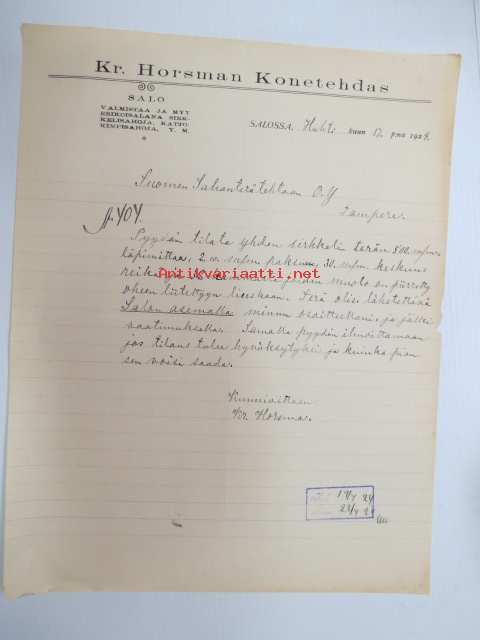 Kr. Horsman Konetehdas
SALO
VALMISTAA JA MYY
ERIKOISALANA SIRK-
KELISAHOJA, KATTO-
KIVIPISAHOJA, Y. M.
SALOSSA, Huhti kuun 12 p:nä 1924.
Suomen Sahanterätehtaan O.Y
Tampere.
Pyydän tilata yhden sirkkeli terän 800 m/m
läpimittaa, 2. m/m paksun, 30 m/m keskus
reikä joiden muoto on piirretty
oheen liitettyyn lieuskaan. Terä olisi lähetettävä
Salon asemalla minun osoitteellani ja jälki-
vaatimuksella. Samalla pyydän ilmoittamaan
jos tilaus tulee hyväksytyksi ja kuinka pian
sen voisi saada.
Antikvariaatti.net
Kunnioittaen
Kr. Horsman.
24
24